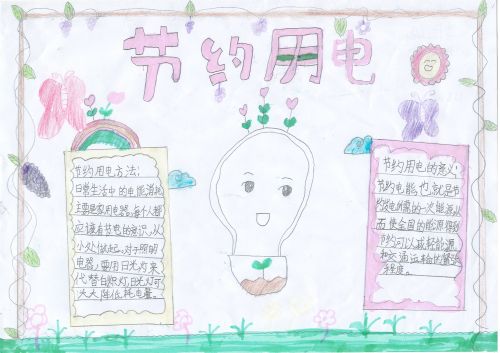 节约用电
节约用电方法:
日常生活中的电能消耗
主要是家用电器,每个人都
应该有节电的意识,从
小处做起。对于照明
电器,要用日光灯来
代替白炽灯,日光灯可
大大降低耗电量。
节约用电的意义:
节约电能,也就是节
约发电所需的一次能源,从
而使全国的能源得到
节约可以减轻能源
和交通运输的紧张
程度。